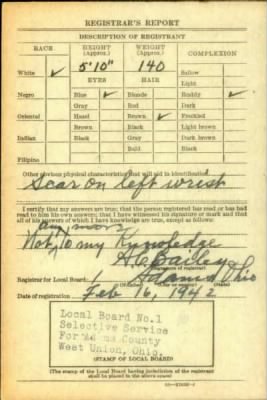 REGISTRAR'S REPORT
DESCRIPTION OF REGISTRANT
RACE HEIGHT (Approx.) WEIGHT (Approx.) COMPLEXION
White ✓ 5'10" 140 Sallow
EYES HAIR Light
Negro Blue ✓ Blonde Ruddy ✓
Gray Red Dark
Oriental Hazel Brown ✓ Freckled
Brown Black Light brown
Indian Black Gray Dark brown
Bald Black
Filipino
Other obvious physical characteristics that will aid in identification
Scar on left wrist
I certify that my answers are true; that the person registered has read or has had
read to him his own answers; that I have witnessed his signature or mark and that
all of his answers of which I have knowledge are true, except as follows:
Not to my Knowledge
Bailey
(Signature of registrar)
Registrar for Local Board 1 Adams Ohio
(Number) (City or county) (State)
Date of registration Feb 16, 1942
Local Board No.1
Selective Service
For Adams County
West Union, Ohio.
(STAMP OF LOCAL BOARD)
(The stamp of the Local Board having jurisdiction of the registrant
shall be placed in the above space)